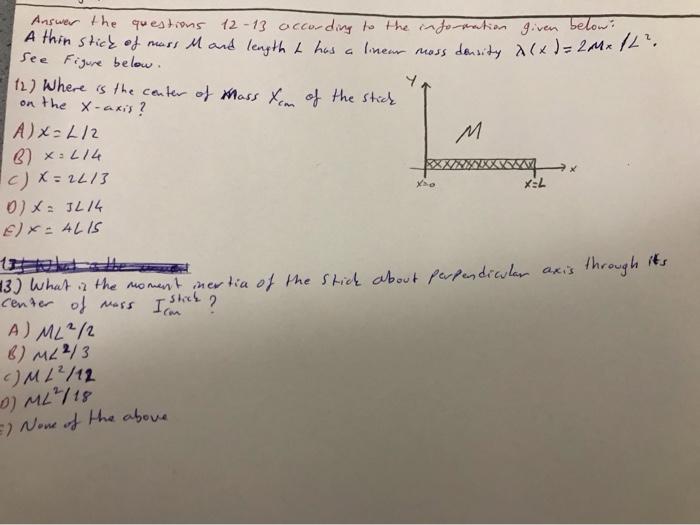 Answer the questions 12-13 according to the information given below:
A thin stick of mass M and length L has a linear mass density λ(x)=2Mx/L².
See Figure below.
12.) Where is the center of mass Xcm of the stick
on the x-axis?
A) x=L/2
B) x=L/4
C) x=2L/3
D) x=3L/4
E) x=4L/5
Y
M
x
x=0
x=L
13.) What is the moment inertia of the stick about perpendicular axis through its
center of mass I stick cm ?
A) ML²/2
B) ML²/3
C) ML²/12
D) ML²/18
E) None of the above